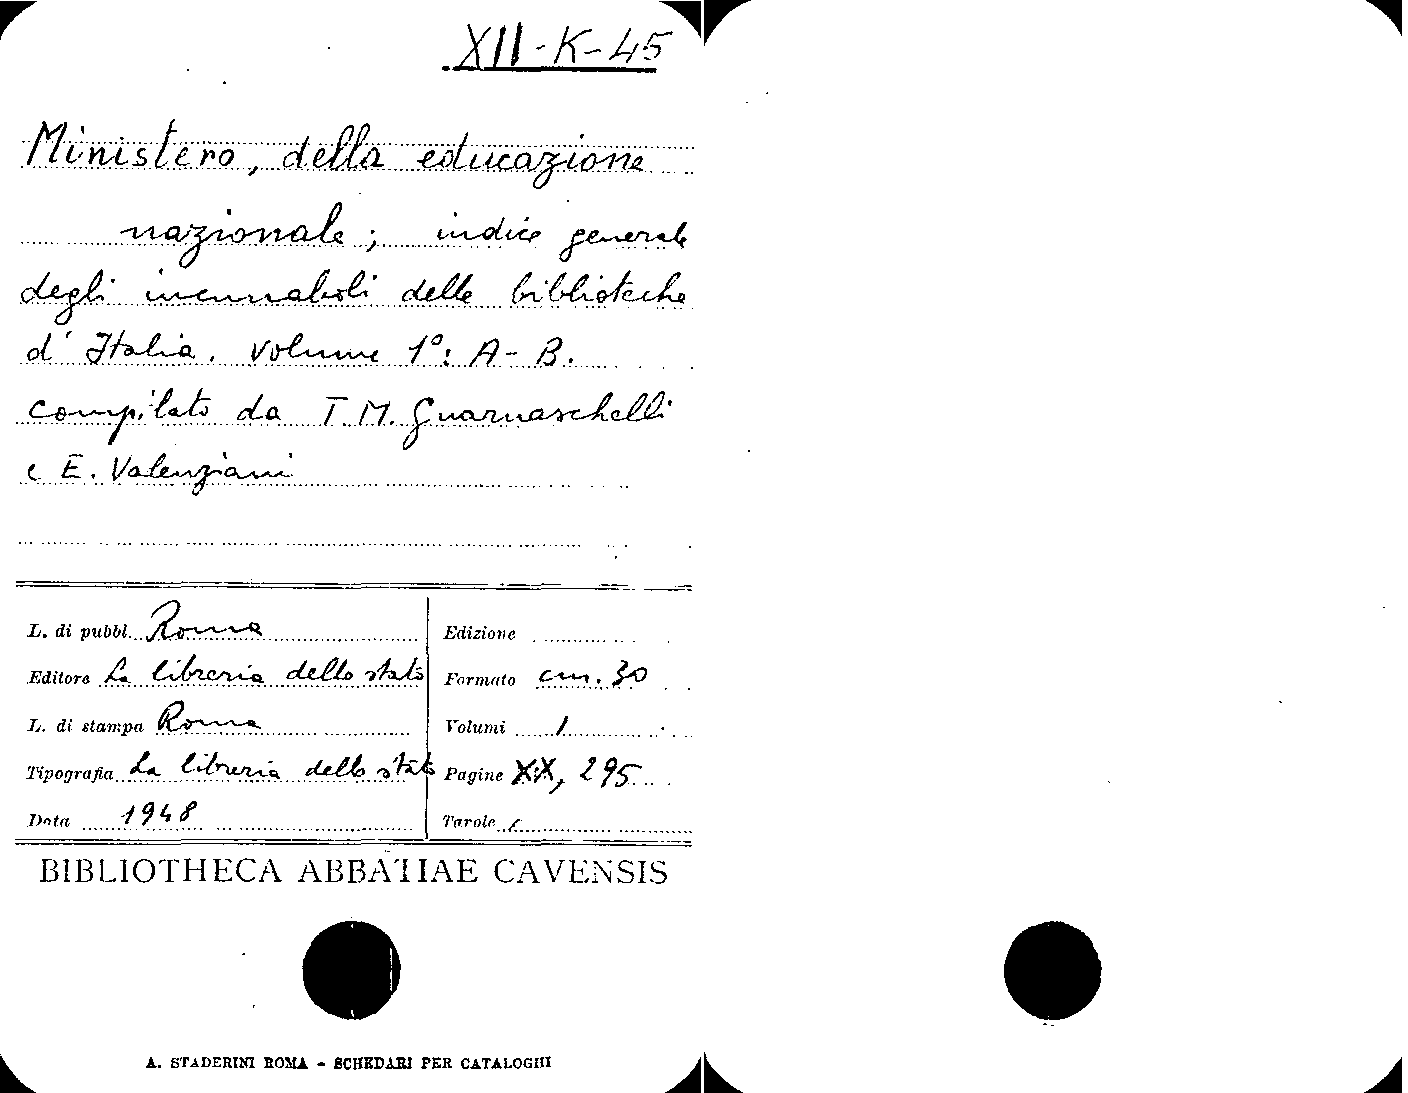 XII-K-45
Ministero, della educazione
nazionale; indice generale
degli incunaboli delle biblioteche
d'Italia. Volume 1º: A-B.
compilato da T.M. Guarnaschelli
e E. Valenziani
L. di pubbl. Roma
Editore La libreria dello stato
L. di stampa Roma
Tipografia La libreria dello stato
Data 1948
Edizione
Formato cm. 30
Volumi 1
Pagine XX, 295
Tavole /
BIBLIOTHECA ABBATIAE CAVENSIS
A. STADERINI ROMA - SCHEDARI PER CATALOGHI